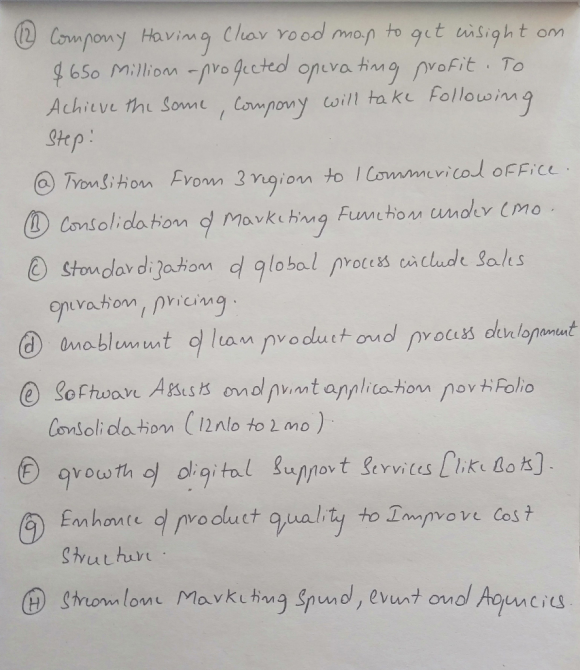 (12) Company Having Clear road map to get insight on
$650 Million - projected operating profit. To
Achieve the Same, Company will take Following
Step:
(a) Transition From 3 region to 1 Commerical office.
(B) Consolidation of Marketing Function under CMO.
(C) Standardization of global process include Sales
operation, pricing.
(d) enablement of lean product and process development
(e) Software Assists and print application portifolio
Consolidation (12 to 2 mo)
(F) growth of digital Support Services [like Bots].
(g) Enhance of product quality to Improve Cost
Structure.
(H) Streamlone Marketing Spend, event and Agencies.